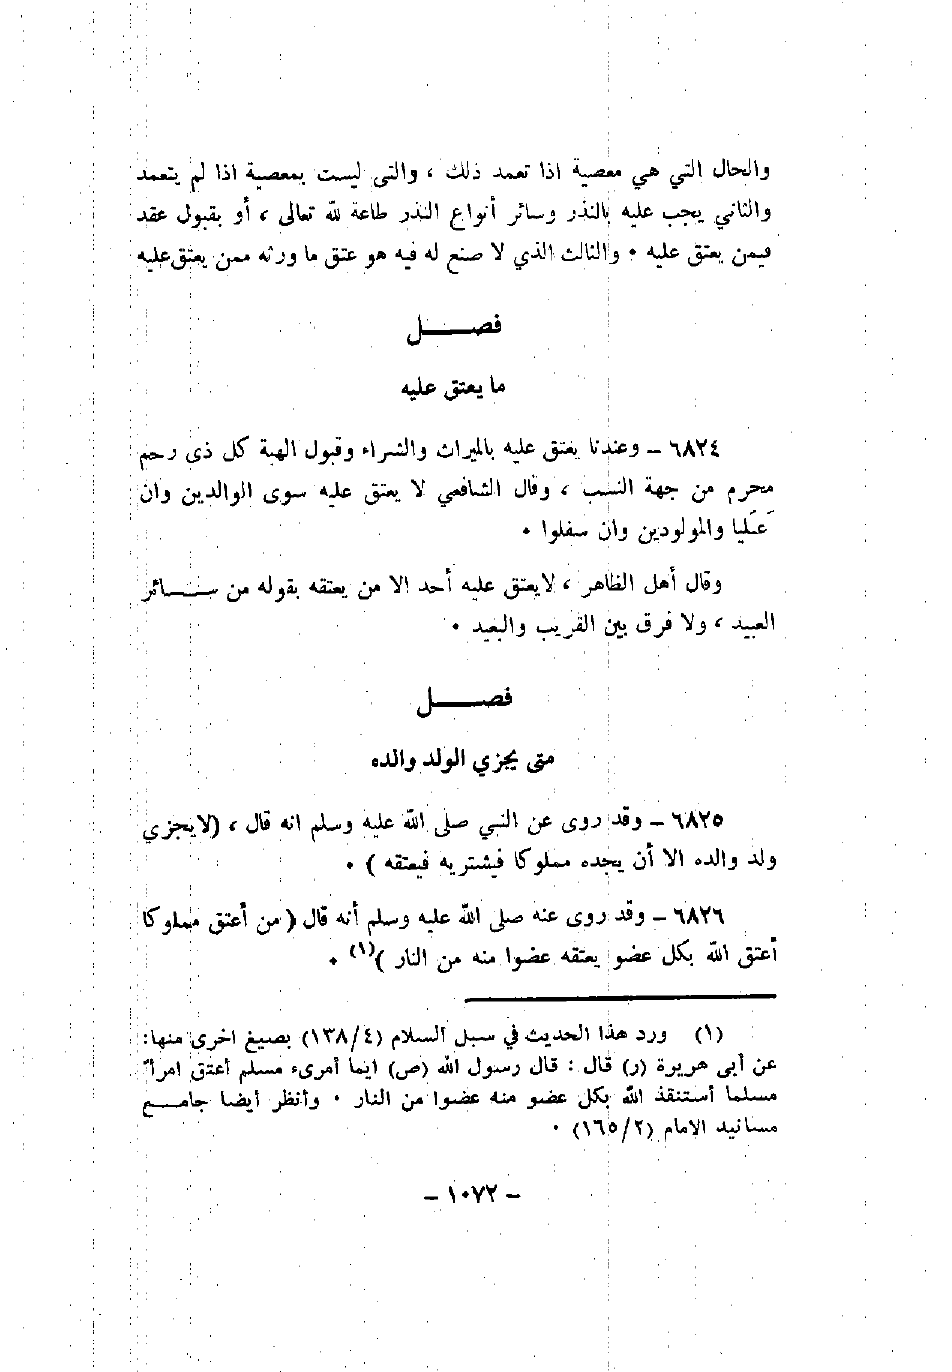 والحال التي هي معصية اذا تعمد ذلك ، والتى ليست بمعصية اذا لم يتعمد
والثاني يجب عليه بالنذر وسائر أنواع النذر طاعة لله تعالى ، أو بقبول عقد
فيمن يعتق عليه • والثالث الذي لا صنع له فيه هو عتق ما ورثه ممن يعتق عليه
فصـــــل
ما يعتق عليه
٦٨٢٤ – وعندنا يعتق عليه بالميراث والشراء وقبول الهبة كل ذى رحم
محرم من جهة النسب ، وقال الشافعي لا يعتق عليه سوى الوالدين وان
عليا والمولودين وان سفلوا •
وقال أهل الظاهر ، لايعتق عليه أحد الا من يعتقه بقوله من ســـائر
العبيد ، ولا فرق بين القريب والبعيد •
فصـــــل
متى يجزي الولد والده
٦٨٢٥ – وقد روى عن النبي صلى الله عليه وسلم انه قال ، (لايجزي
ولد والده الا أن يجده مملوكا فيشتريه فيعتقه ) •
٦٨٢٦ – وقد روى عنه صلى الله عليه وسلم أنه قال ( من أعتق مملوكا
أعتق الله بكل عضو يعتقه عضوا منه من النار )(١) •
(١) ورد هذا الحديث في سبل السلام (١٣٨/٤) بصيغ اخرى منها:
عن أبى هريرة (ر) قال : قال رسول الله (ص) ايما أمرىء مسلم أعتق امرأ
مسلما أستنقذ الله بكل عضو منه عضوا من النار • وأنظر أيضا جامـــع
مسانيد الامام (١٦٥/٢) •
– ١٠٧٢ –